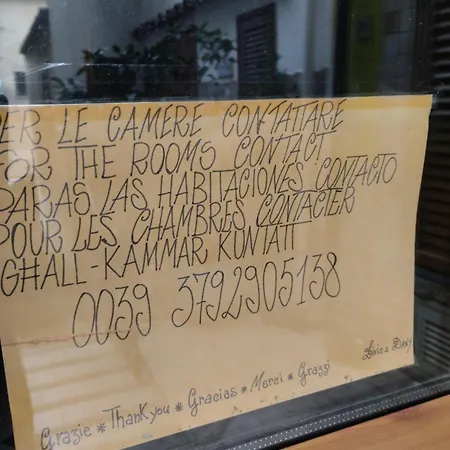 ER LE CAMERE CONTATTARE
FOR THE ROOMS CONTACT
PARAS LAS HABITACIONES CONTACTO
POUR LES CHAMBRES CONTACTER
GHALL-KAMMAR KUNTATT
0039 3792905138
Grazie * Thank you * Gracias * Merci * Grazzi